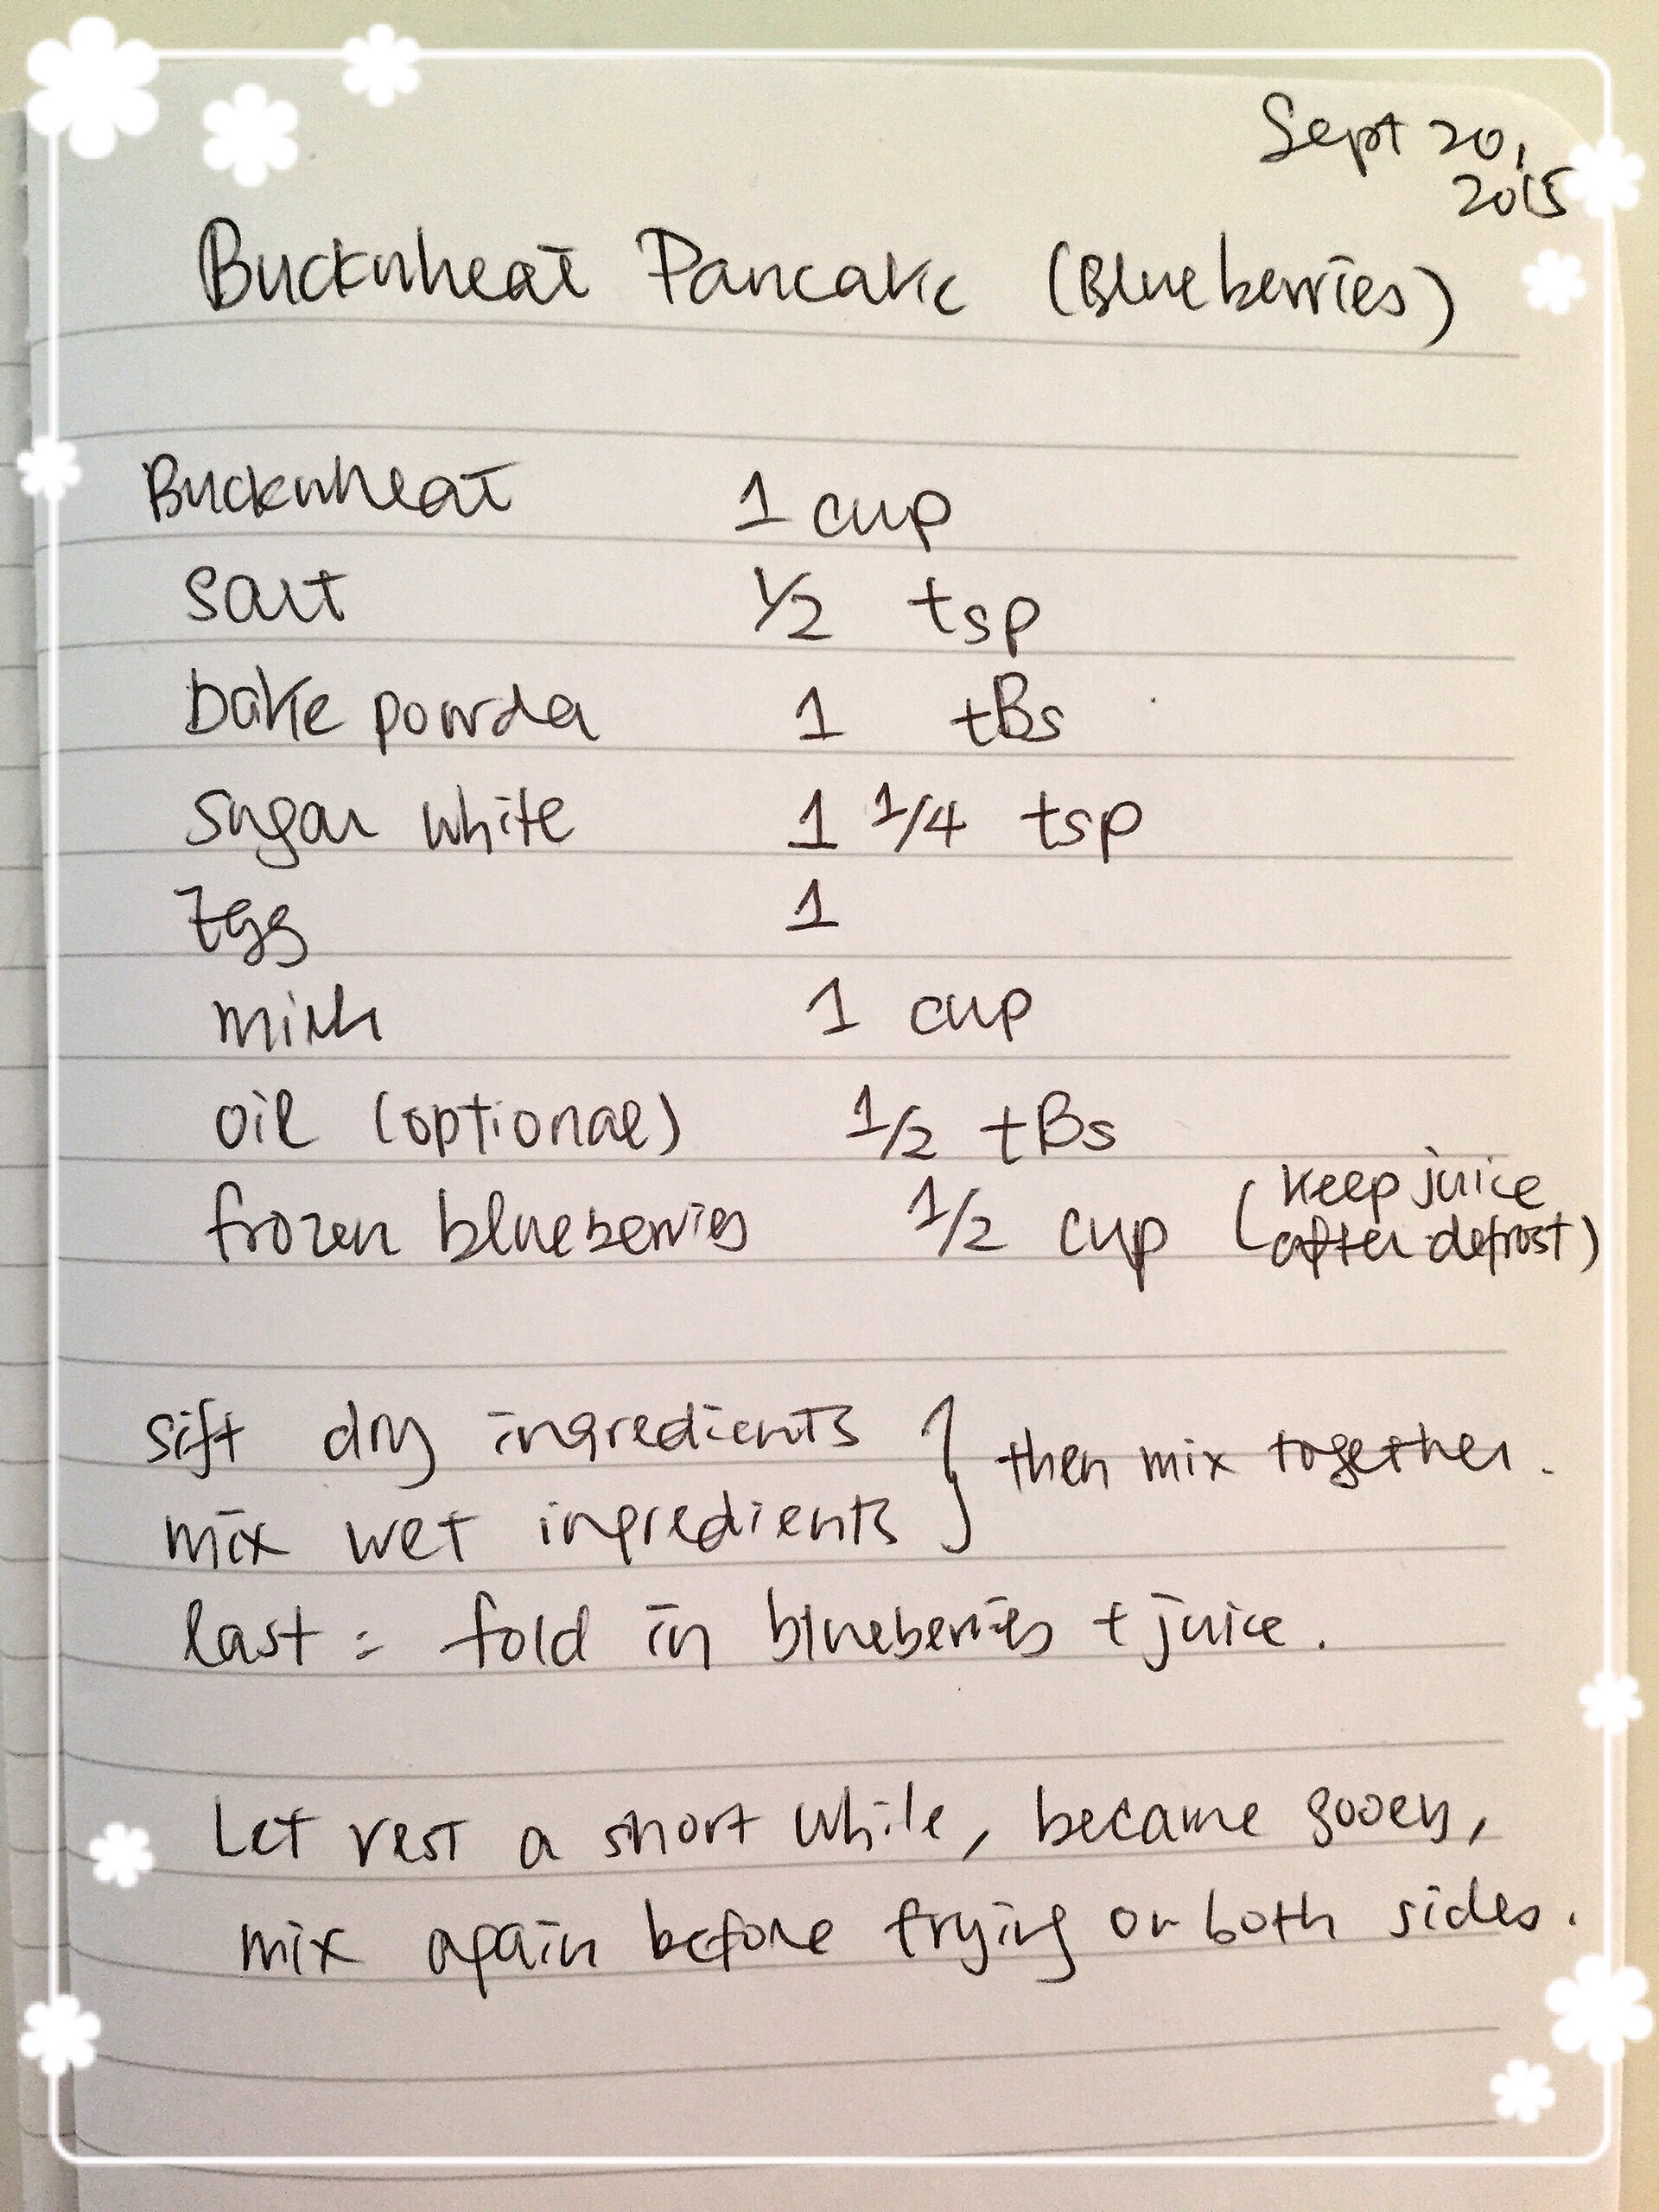 Sept 20,
2015
Buckwheat Pancake (Blueberries)
Buckwheat 1 cup
salt 1/2 tsp
bake powda 1 tBs
sugar white 1 1/4 tsp
Egg 1
milk 1 cup
oil (optional) 1/2 tBs
frozen blueberries 1/2 cup (keep juice
after defrost)
sift dry ingredients } then mix together.
mix wet ingredients
last: fold in blueberries + juice.
Let rest a short while, became gooey,
mix again before frying on both sides.